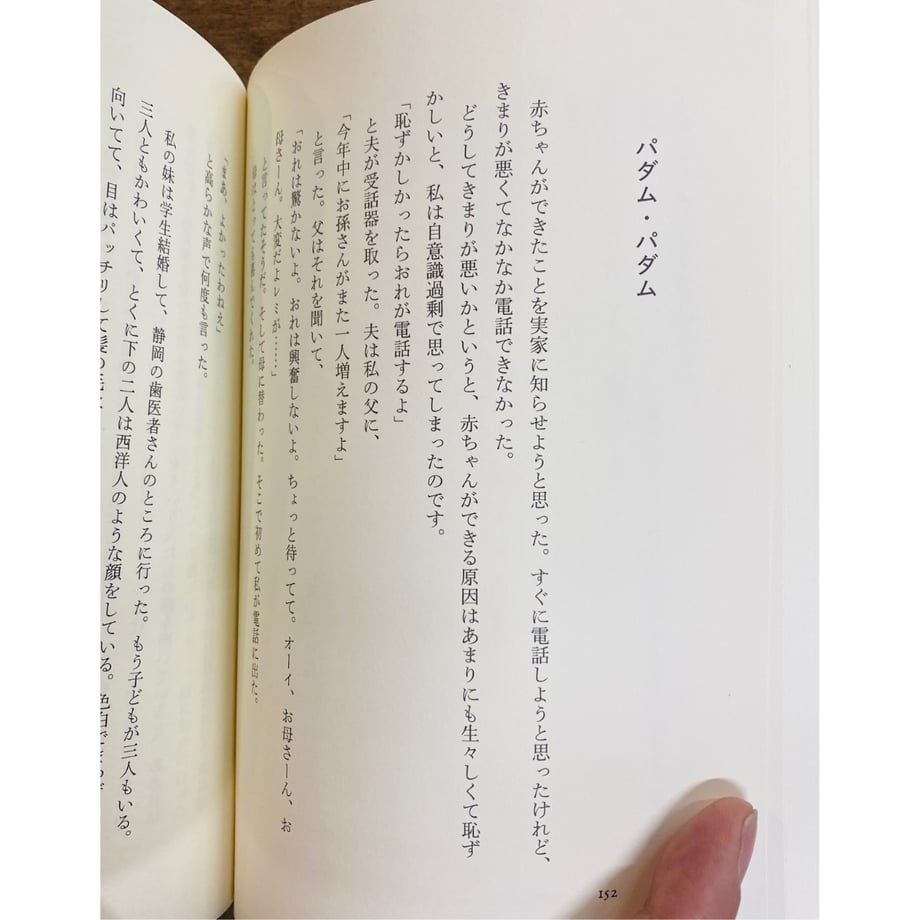 パダム・パダム
赤ちゃんができたことを実家に知らせようと思った。すぐに電話しようと思ったけれど、
きまりが悪くてなかなか電話できなかった。
どうしてきまりが悪いかというと、赤ちゃんができる原因はあまりにも生々しくて恥ず
かしいと、私は自意識過剰で思ってしまったのです。
「恥ずかしかったらおれが電話するよ」
と夫が受話器を取った。夫は私の父に、
「今年中にお孫さんがまた一人増えますよ」
と言った。父はそれを聞いて、
「おれは驚かないよ。おれは興奮しないよ。ちょっと待ってて。オーイ、お母さーん、お
母さーん。大変だよレミが……」
と言ってたそうだ。そして母に替わった。そこで初めて私が電話に出た。
「まあ、よかったわねえ」
と高らかな声で何度も言った。
私の妹は学生結婚して、静岡の歯医者さんのところに行った。もう子どもが三人もいる。
三人ともかわいくて、とくに下の二人は西洋人のような顔をしている。色白で
向いてて、目はパッチリして髪の毛
152